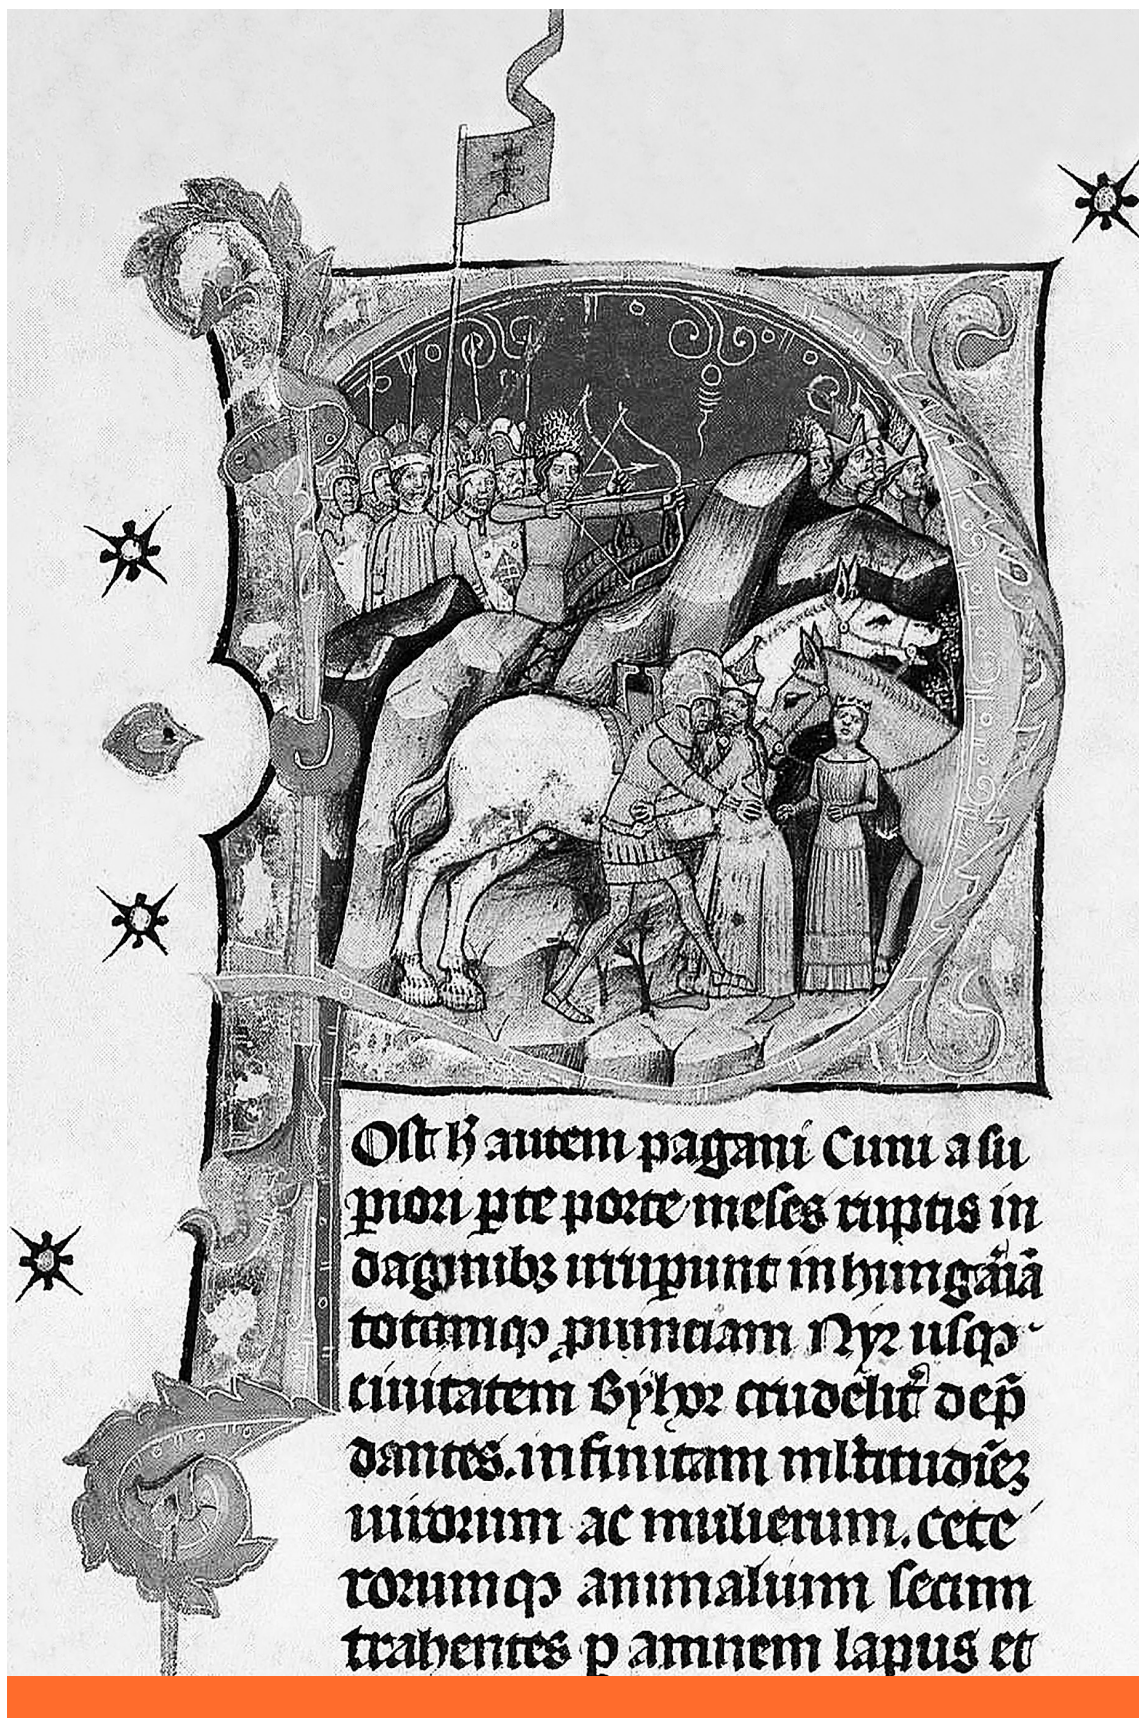 Ost h̄ autem pagani Cuni a su
piori ꝑte porte meses ruptis in
daginibꝫ irruperunt in hungariā
totamqꝫ ꝓuinciam Nyr usqꝫ
ciuitatem Byhor crudelit᷑ dep̄
dantes. infinitam ml̄titudīeꝫ
uirorum ac mulierum. cete
rorumqꝫ animalium secum
trahentes ꝑ amnem lapus et